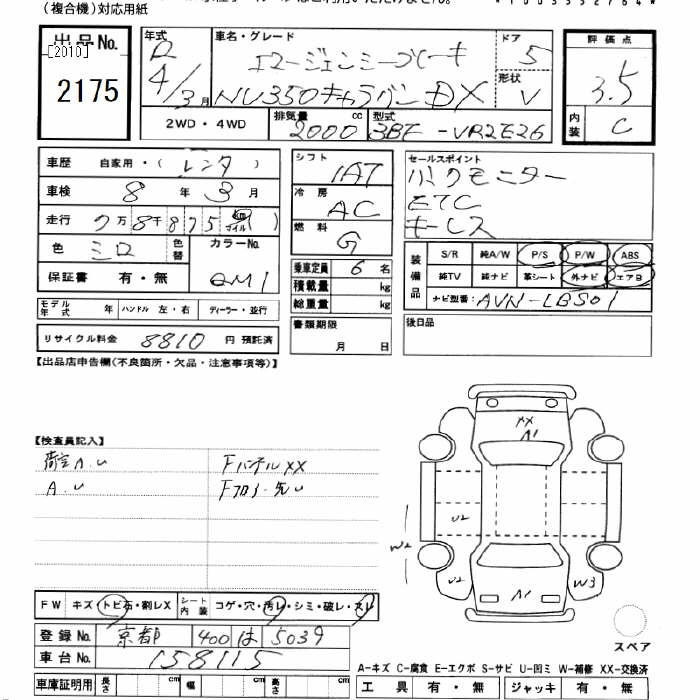 (複合機)対応用紙
出品No.
[2010]
2175
年式
R
4/3月
車名・グレード
エマージェンシーブレーキ
NV350キャラバン DX
ドア
5
形状
V
評価点
3.5
内装
C
2WD・4WD
排気量
2000cc
型式
3BF-VR2E26
車歴 自家用・(レンタ)
車検 8年3月
走行 7万8千875 km マイル( )
色 シロ 色替
カラーNo.
QM1
保証書 有・無
モデル年式 年 ハンドル 左・右 ディーラー・並行
リサイクル料金 8810円 預託済
シフト
IAT
冷房
AC
燃料
G
乗車定員 6名
積載量 kg
総重量 kg
書類期限
月 日
セールスポイント
バックモニター
ETC
キーレス
装備品
S/R 純A/W P/S P/W ABS
純TV 純ナビ 革シート 外ナビ エアB
ナビ型番: AVN-LBS01
後日品
【出品店申告欄(不良箇所・欠品・注意事項等)】
【検査員記入】
荷室A.U
A.U
FパネルXX
Fフロア先U
XX
A1
U2
W2
U2
A1
W3
スペア
FW キズ トビ石・割レX シート内装 コゲ・穴・汚レ・シミ・破レ・スレ
登録No. 京都 400 は 5039
車台No. 158115
車庫証明用 長さ cm 幅 cm 高さ cm
A-キズ C-腐食 E-エクボ S-サビ U-凹ミ W-補修 XX-交換済
工具 有・無 ジャッキ 有・無